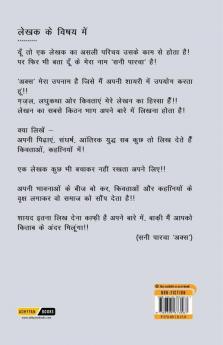 लेखक के विषय में
यूँ तो एक लेखक का असली परिचय उसके काम से होता है!
पर फिर भी बता दूँ के मेरा नाम 'सनी पारचा' है!
'अक्स' मेरा उपनाम है जिसे मैं अपनी शायरी में उपयोग करता
हूँ!!
गज़ल, लघुकथा ओर किवताएं मेरे लेखन का हिस्सा हैं!!
लेखन का सबसे कितन भाग अपने बारे में लिखना होता है!
क्या लिखें –
अपनी पिढ़ाएं, संघर्ष, आंतिरक युद्ध सब कुछ तो लिख देते हैं
किवताओं, कहिनयों में!
एक लेखक कुछ भी बचाकर नहीं रखता अपने लिए!!
अपनी भावनाओं के बीज बो कर, किवताओं और कहिनयों के
वृक्ष लगाकर वो समाज को सौंप देता है!!
शायद इतना लिख देना काफी है अपने बारे में, बाकी मैं आपको
किताब के अंदर मिलूंगा!!
(सनी पारचा 'अक्स')
BOOKS
NON-FICTION